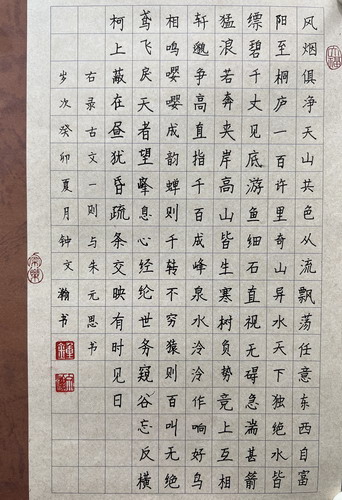 风烟俱净天山共色从流飘荡任意东西自富
阳至桐庐一百许里奇山异水天下独绝水皆
缥碧千丈见底游鱼细石直视无碍急湍甚箭
猛浪若奔夹岸高山皆生寒树负势竞上互相
轩邈争高直指千百成峰泉水泠泠作响好鸟
相鸣嘤嘤成韵蝉则千转不穷猿则百叫无绝
鸢飞戾天者望峯息心经纶世务窥谷忘反横
柯上蔽在昼犹昏疏条交映有时见日
右录古文一则与朱元思书
岁次癸卯夏月钟文瀚书